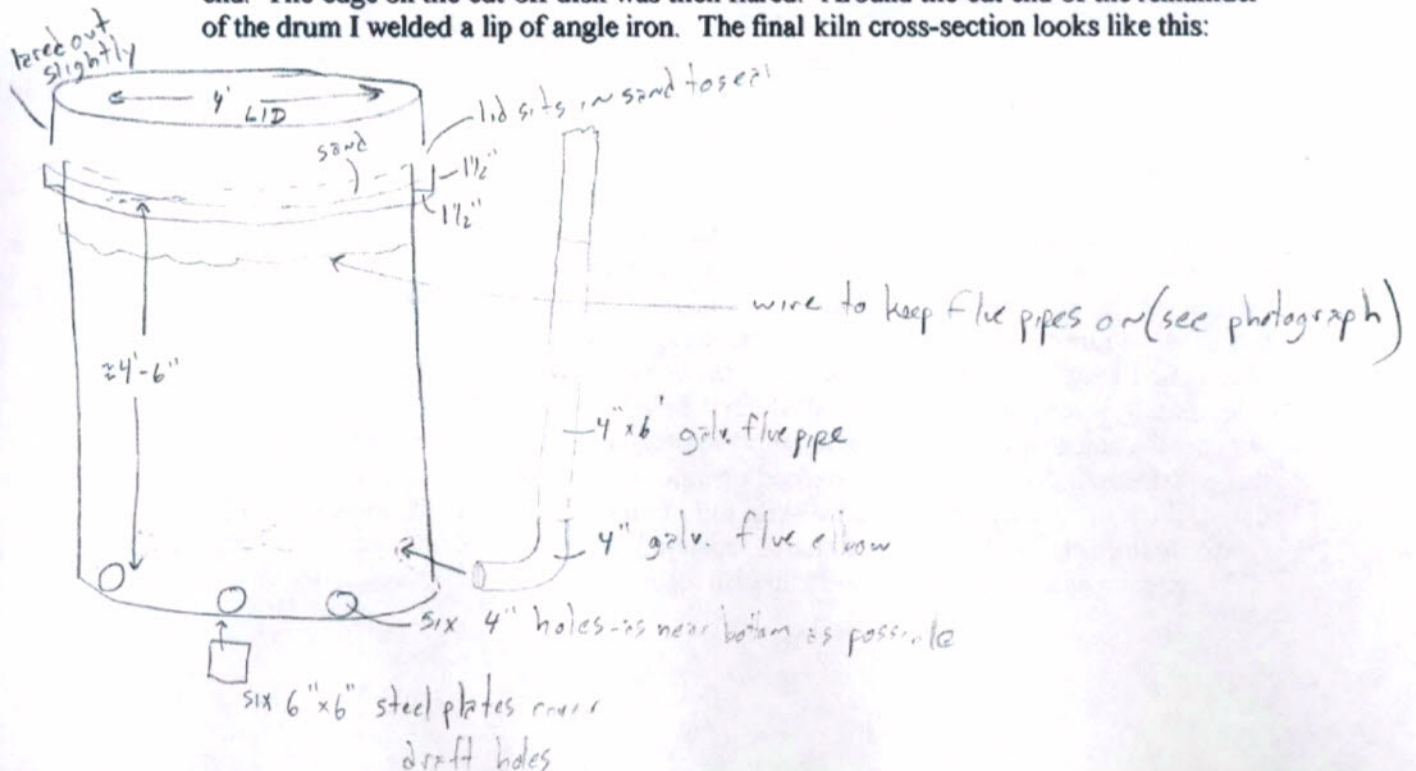 of the drum I welded a lip of angle iron. The final kiln cross-section looks like this:
out
slightly
4'
LID
lid sits in sand to seal
sand
1½"
1½"
wire to keep flue pipes on (see photograph)
≈4'-6"
4" x 6' galv. flue pipe
4" galv. flue elbow
six 4" holes-as near bottom as possible
six 6"x6" steel plates cover
draft holes